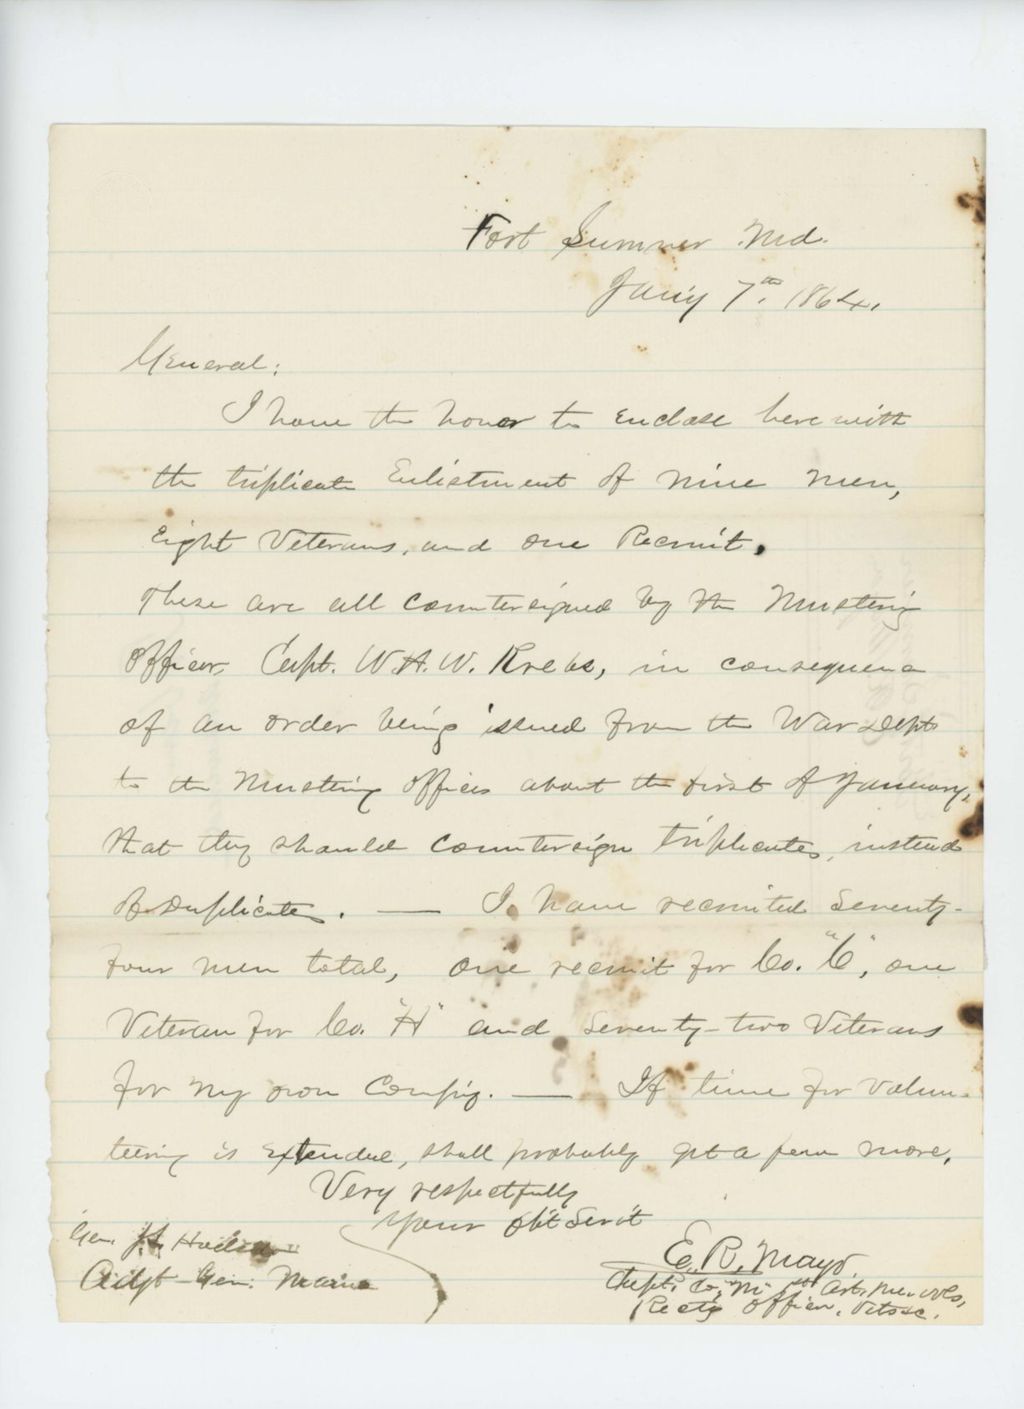 Fort Sumner Md.
Jan'y 7th. 1864.
General:
I have the honor to enclose here with
the triplicate Enlistment of nine men,
eight Veterans, and one Recruit.
These are all countersigned by the Mustering
Officer, Capt. W. H. W. Krebs, in consequence
of an order being issued from the War Dept
to the Mustering officers about the first of January,
that they should countersign triplicates, instead
of Duplicates. — I have recruited Seventy-
four men total, one recruit for Co. "C", one
Veteran for Co. "H" and Seventy-two Veterans
for my own Comp'y. — If time for Volun-
teering is extended, shall probably get a few more.
Very respectfully
Your Ob't Serv't
E. R. Mayo.
Capt. Co. "M" 1st Art. Me. Vols,
Rec't'g Officer, Vets &c.
Gen. J. L. Hodsdon
Adjt - Gen. Maine